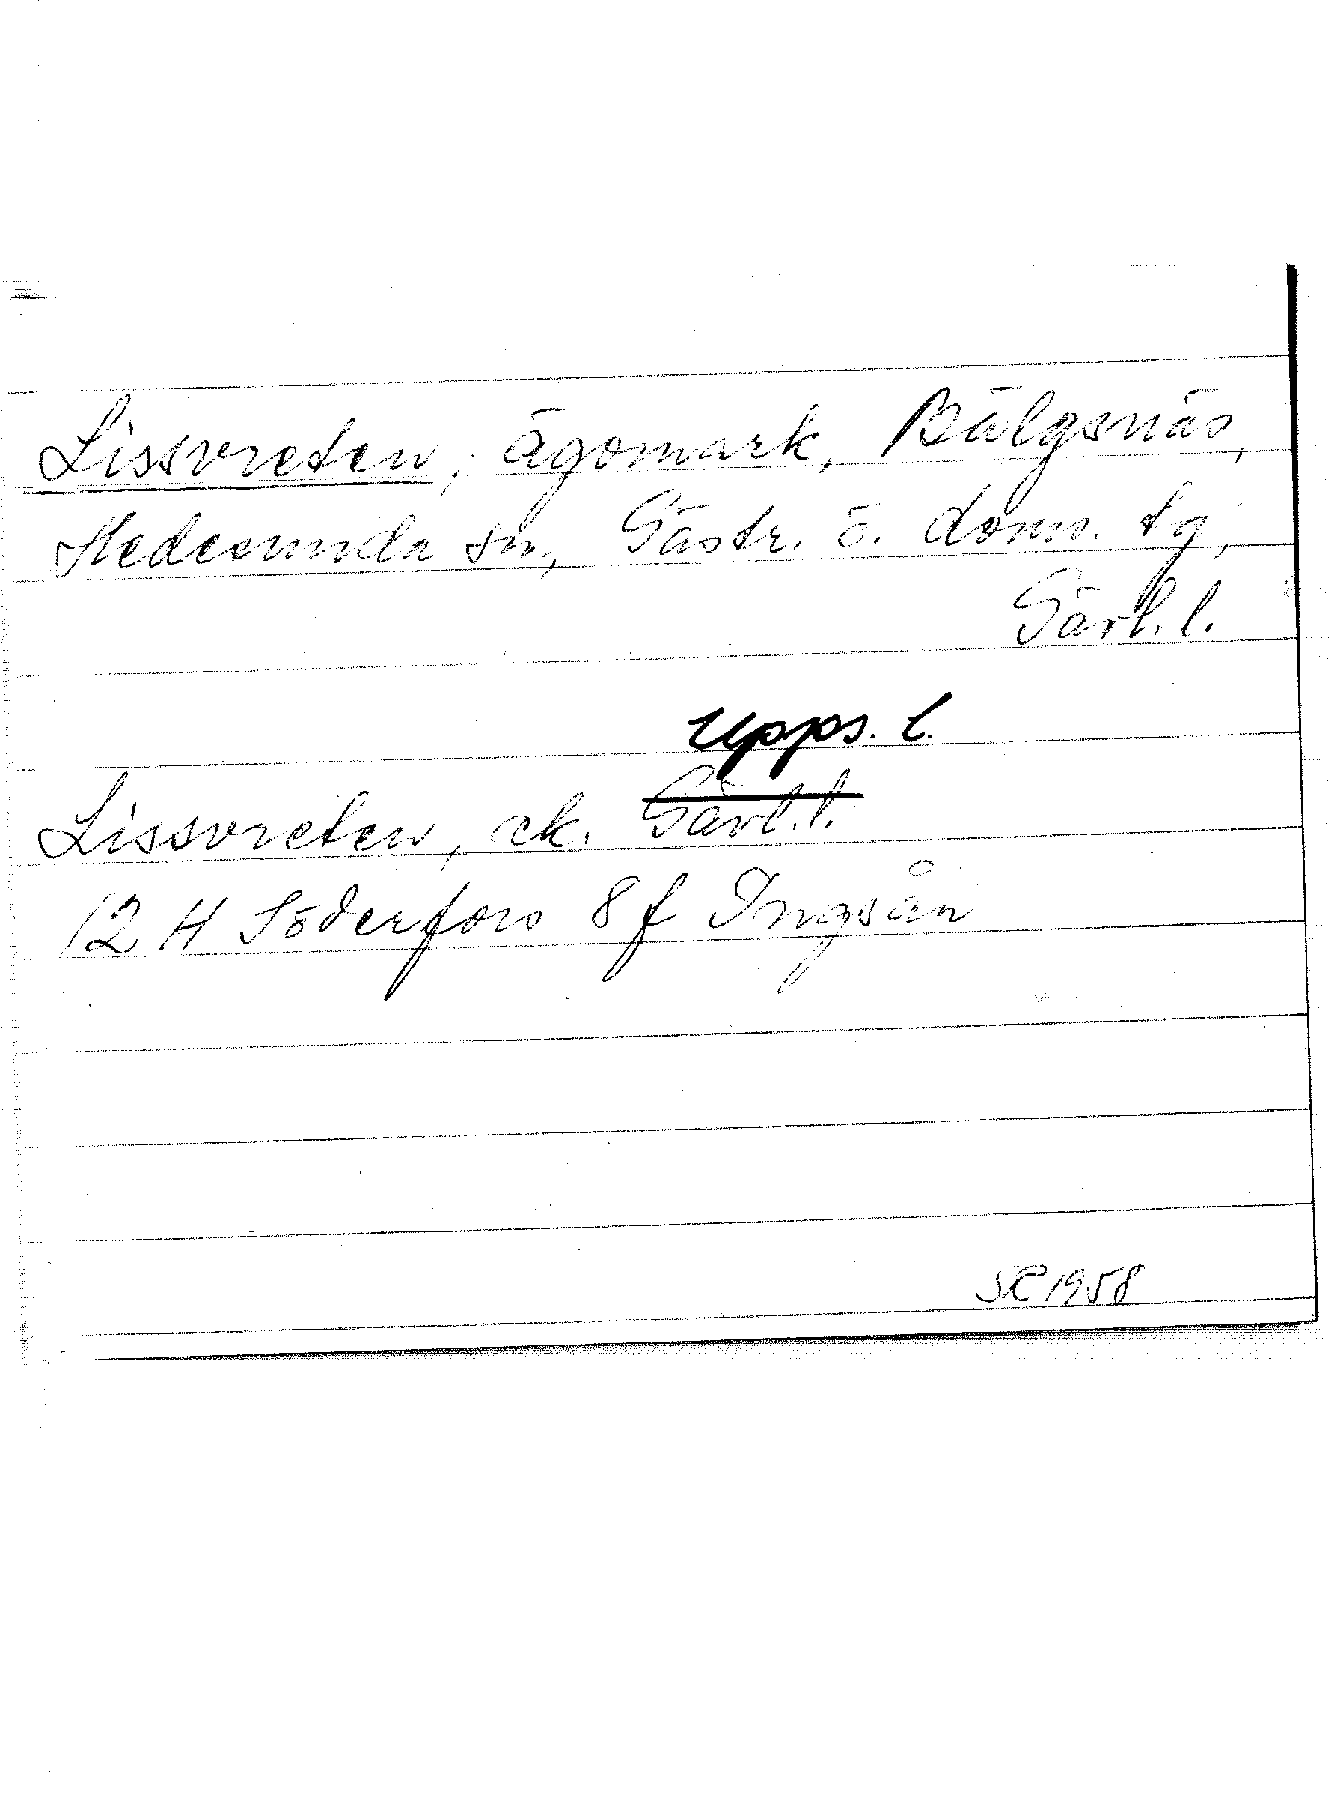 Lissvreten, ägomark, Bälgsnäs,
Hedesunda sn, Gästr. ö. doms. tg,
Gävl. l.
Upps. l.
Lissvreten, ek. Gävl. l.
12 H Söderfors 8 f Ingsån
1958